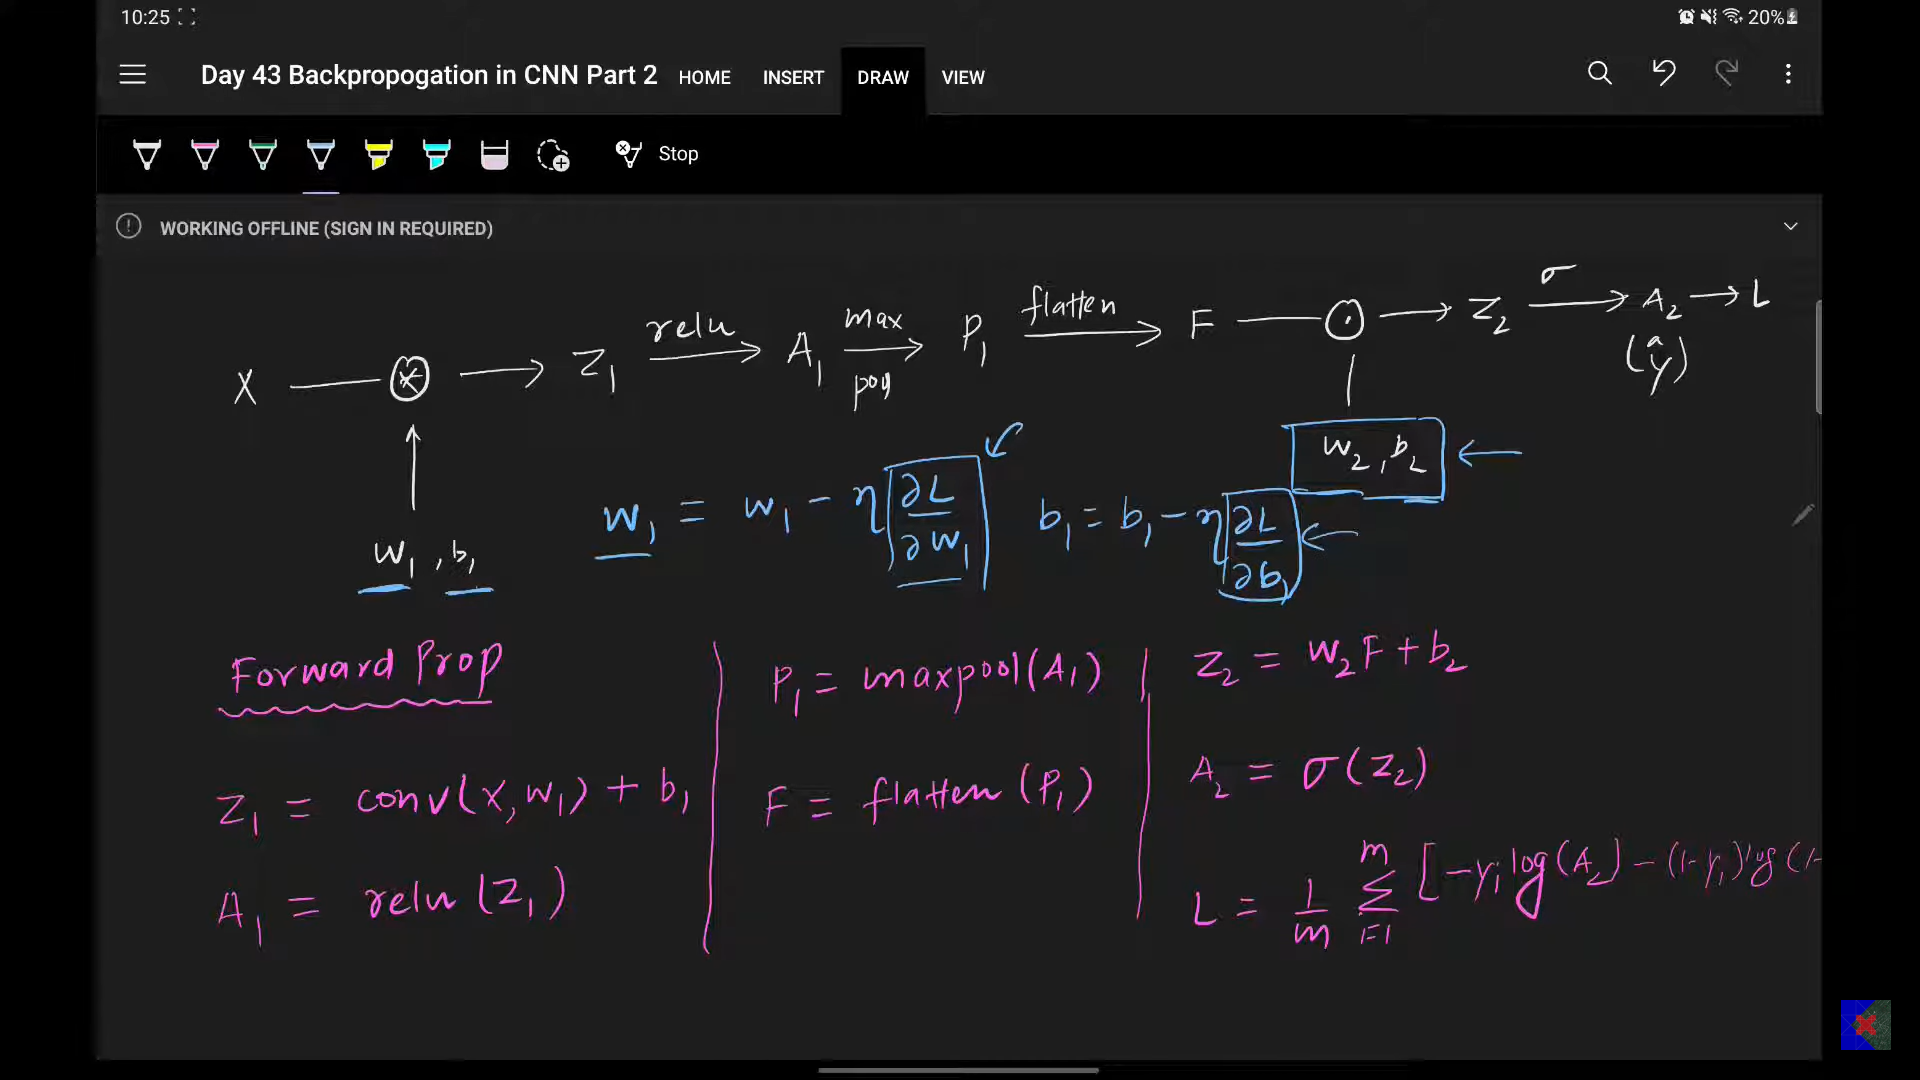 10:25 20%
Day 43 Backpropogation in CNN Part 2 HOME INSERT DRAW VIEW
Stop
WORKING OFFLINE (SIGN IN REQUIRED)
X → Z₁ relu → A₁ max pool → P₁ flatten → F ⊙ → Z₂ σ → A₂ → L
(ŷ)
W₂, b₂
W₁ = W₁ - η ∂L/∂W₁ b₁ = b₁ - η ∂L/∂b₁
W₁, b₁
Forward Prop
Z₁ = conv(X, W₁) + b₁
A₁ = relu (Z₁)
P₁ = maxpool(A₁)
F = flatten (P₁)
Z₂ = W₂F + b₂
A₂ = σ(Z₂)
L = 1/m Σ i=1 m [-yᵢ log(A₂) - (1-yᵢ) log (1-